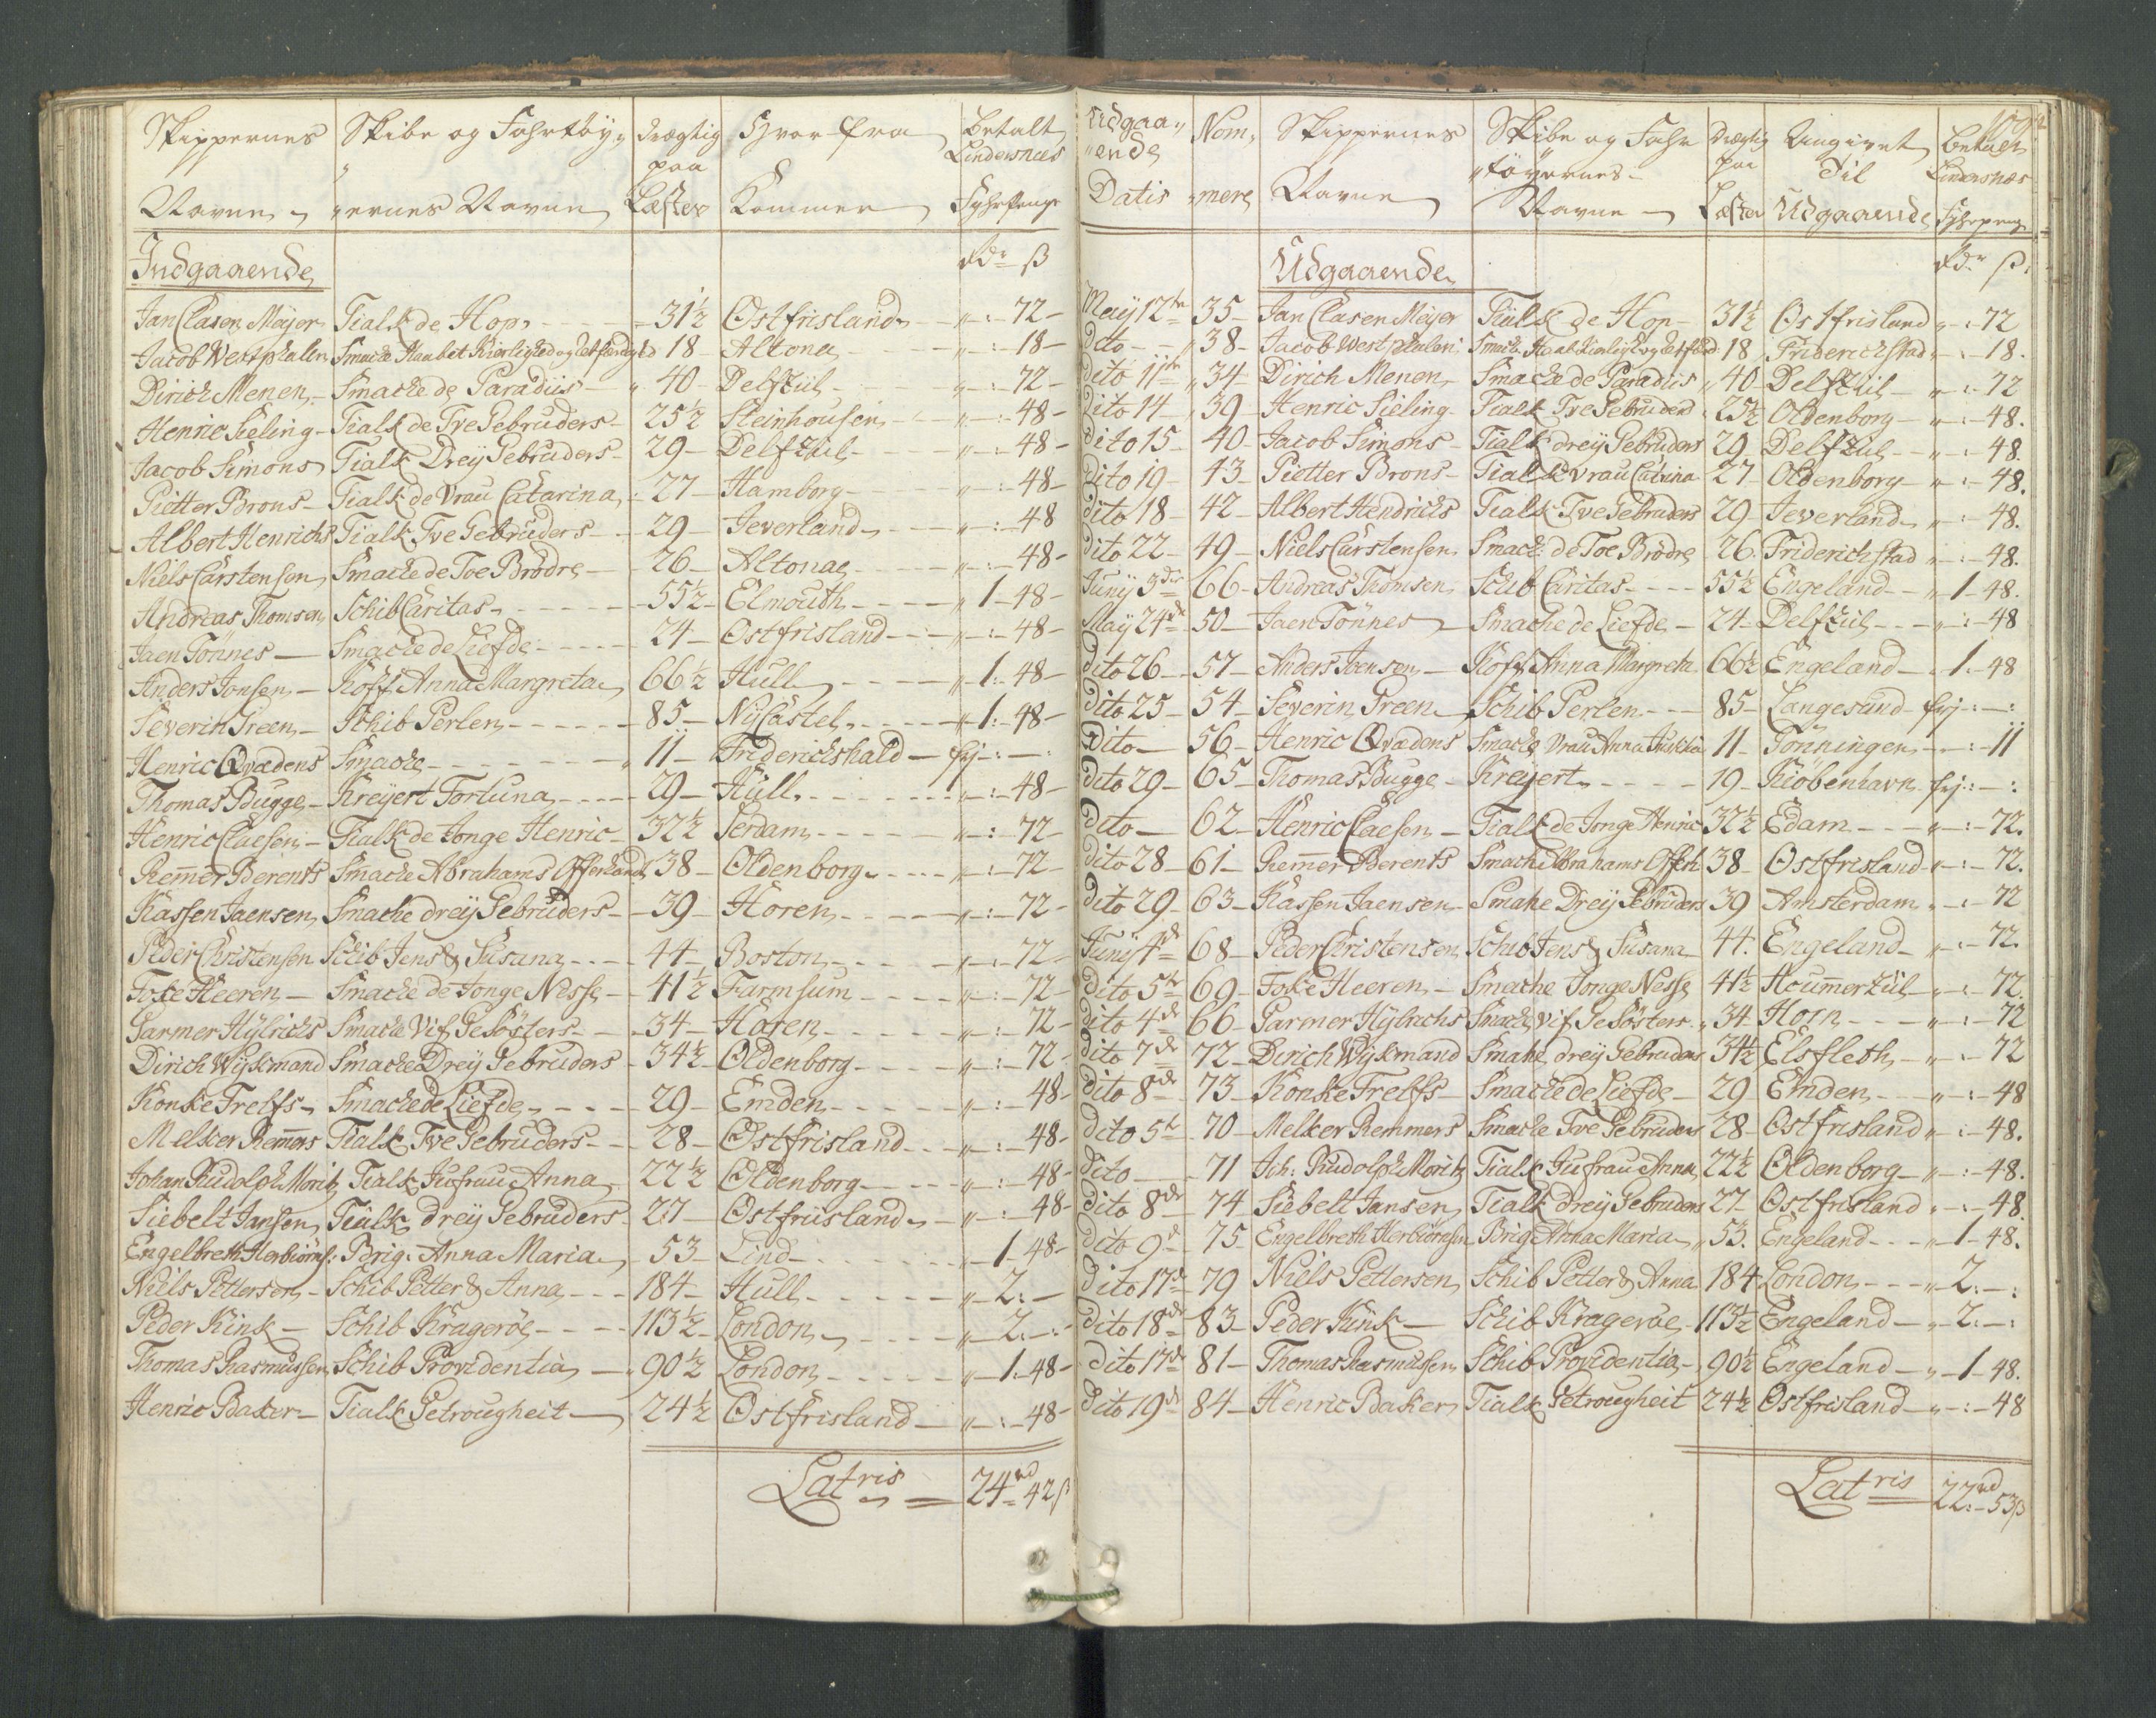 Skippernes Skibe og Fahrtöÿ„ drægtig Hvor fra Betalt
paa Lindersnæs
Navne „ernes Navne Læster Kommer Fyhrpenge
Indgaaende Rdr ß
Jan Clasen Meÿer Tialk de Hop 31½ Ostfrisland „:-72-
Jacob Westphalen Smacke Haabet Kierlighed og Retfærdighed 18 Altona „:-18-
Dirich Menen Smacke de Paradiis 40 Delfziil „:-72-
Henric Sieling Tialk de Tve Gebruders 25½ Steinhousen „:-48-
Jacob Simons Tialk Dreÿ Gebruders 29 Delfziil „:-48-
Pietter Brons Tialk de Vrau Catarina 27 Hamborg „:-48-
Albert Henrichs Tialk Tve Gebrüders 29 Jeverland „:-48
Niels Carstensen Smacke de Toe Brödre 26 Altona „:-48-
Andreas Thomsen Schib Caritas 55½ Elmouth „1-48-
Jaen Tönnes Smacke de Liefde 24 Ostfrisland „:-48-
Anders Jonsen Koff Anna Margreta 66½ Hull „1:-48-
Severin Preen Schib Perlen 85 Nÿ Castel „1:-48-
Henric Qvædens Smacke 11 Friderichshald frj-:-:
Thomas Bugge Kreÿert Fortuna 29 Hull „:-48-
Henric Claesen Tialk de Jonge Henric 32½ Serdam „:-72-
Remmer Berents Smacke Abrahams Offerhand 38 Oldenborg „:-72-
Kassen Jaensen Smacke dreÿ Gebrüders 39 Horen „:-72-
Peder Christensen Schib Jens & Susana 44 Boston „:-72-
Foke Heeren Smacke de Jonge Nesse 41½ Farmsum „:-72-
Garmer Hÿlrichs Smacke Vif Gesösters 34 Horen „:-72-
Dirich Wÿkmand Smacke Dreÿ Gebruders 34½ Oldenborg „:-72-
Konke Frelfs Smacke de Liefde 29 Emden „:-48-
Melker Remmers Tialk Tve Gebruders 28 Ostfrisland „:-48-
Johan Rudolph Moritz Tialk Jufrau Anna 22½ Oldenborg „:-48-
Siebelt Jansen Tialk dreÿ Gebruders 27 Ostfriisland „:-48-
Engelbreth Herbiörns: Brig: Anna Maria 53 Lind „1-48-
Niels Pettersen Schib Petter & Anna 184 Hull „2:-
Peder Kink Schib Krageröe 113½ London „2:-:-
Thomas Rasmussen Schib Providentia 90½ London „1:48-
Henric Baker Tialk Getrougheit 24½ Ostfrisland „:-48-
Latris 24rd 42ß
Udgaa„ Nom„ Skippernes Skibe og Fahr Drægtig Angivet Betalt
„ende „töÿernes paa Til Lindersnæs
Datis „mere Navne Navne Læster Udgaaende Fyhrpeng
Udgaaende Rdr ß:
Maÿ 12te 35 Jan Clasen Meÿer Tialk de Hop 31½ Ostfrisland „:-72
Dito 38 Jacob Westphalen Smacke Haab Kierligh og Retfærd 18 Friderichstad „:-18.
Dito 11te 34 Dirich Menen Smacke de Paradiis 40 Delfziil „:-72
Dito 14 39 Henric Sieling Tialk Tve Gebruders 25½ Oldenborg „:-48.
Dito 15 40 Jacob Simons Tialk dreÿ Gebruders 29 Delfziil „:-48.
Dito 19 43 Pietter Brons Tialk de Vrau Catrina 27 Oldenborg „:-48.
Dito 18 42 Albert Hendrichs Tialk Tve Gebruders 29 Jeverland „:-48.
Dito 22 49 Niels Carstensen Smack: de Toe Brödre 26. Friderichstad „:-48.
Junÿ 3die 66 Andreas Thomsen Schib Caritas 55½ Engeland „1-48.
Maÿ 24de 50 Jaen Tönnes Smacke de Liefde 24 Delfziil „:-48
Dito 26 57 Anders Joensen Koff Anna Margreta 66½ Engeland 1-48
Dito 25 54 Severin Preen Schib Perlen 85 Langesund frj-:-:
Dito 56 Henric Qvædens Smacke Vrau Anna 11 Tönningen -:-11
Dito 29 65 Thomas Bugge Kreÿert 19 Kiöbenhavn frj:-:
Dito 62 Henric Claesen Tialk de Jonge Henric 32½ Edam „:-72.
Dito 28 61 Remmer Berents Smacke Abrahams Offerh 38 Ostfrisland „:-72.
Dito 29 63 Kassen Jaensen Smake Dreÿ Gebruders 39 Amsterdam „:-72
Junÿ 4de 68 Peder Christensen Schib Jens & Susana 44. Engeland „:-72.
Dito 5te 69 Foke Heeren Smacke Jonge Nesse 41½ Houmerziil „:-72.
Dito 4de 66 Garmer Hÿlrichs Smack Vif Gesösters 34 Horn „:-72
Dito 7de 72 Dirich Wÿkmand Smake dreÿ Gebruders 34½ Elsfleth „:-72
Dito 8de 73 Konke Frelfs Smacke de Liefde 29 Emden „:-48
Dito 5te 70 Melker Remmers Smacke Tve Gebruders 28 Ostfrisland „:-48.
Dito 71 Joh: Rudolph Moritz Tialk Jufrau Anna 22½ Oldenborg „:-48.
Dito 8de 74 Siebelt Jansen Tialk dreÿ Gebruders 27 Ostfrisland „:-48.
Dito 9d 75 Engelbreth Herbiörnsen Brig: Anna Maria 53. Engeland „1-48.
Dito 17de 79 Niels Pettersen Schib Petter & Anna 184 London „2:-:
Dito 18de 83 Peder Kink Schib Krageröe 113½ Engeland „2:-:
Dito 17de 81 Thomas Rasmussen Schib Providentia 90½ Engeland „1-48.
Dito 19de 84 Henric Baker Tialk Getrougheit 24½ Ostfrisland „:-48
Latris 22:rd 53ß